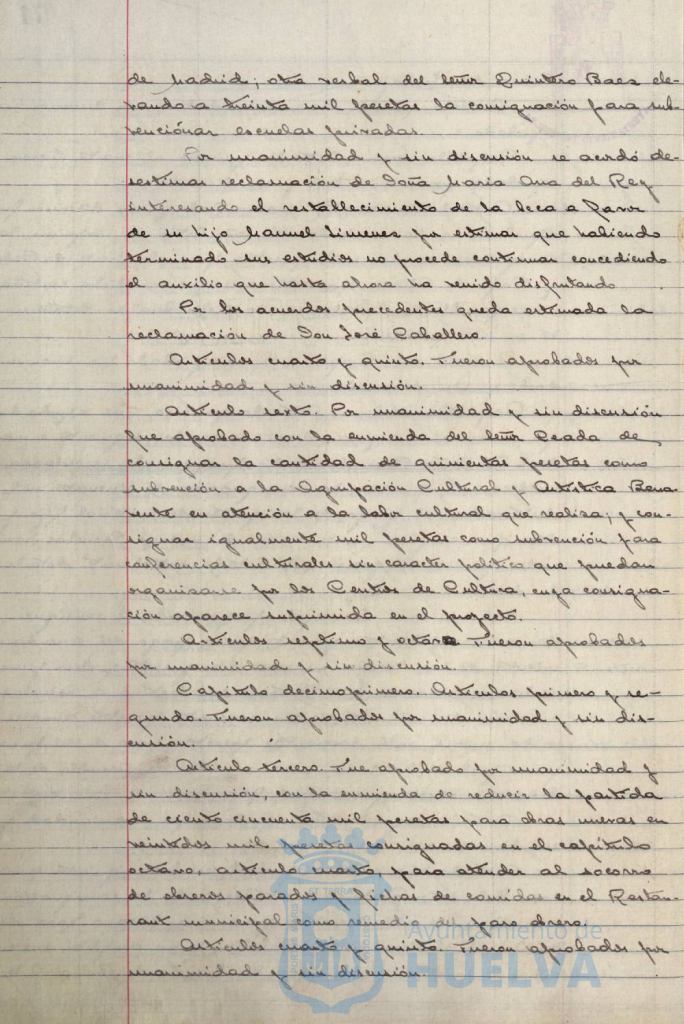 de Madrid; otra verbal del señor Quintero Baez ele-
vando a treinta mil pesetas la consignación para sub-
vencionar escuelas privadas.
Por unanimidad y sin discusión se acordó de-
sestimar reclamación de Doña Maria Ana del Rey
interesando el restablecimiento de la beca a favor
de su hijo Manuel Jimenez por estimar que habiendo
terminado sus estudios no procede continuar concediendo
el auxilio que hasta ahora ha venido disfrutando
Por los acuerdos precedentes queda estimada la
reclamación de Don José Caballero.
Artículos cuarto y quinto. Fueron aprobados por
unanimidad y sin discusión.
Artículo sexto. Por unanimidad y sin discusión
fue aprobado con la enmienda del señor Ceada de
consignar la cantidad de quinientas pesetas como
subvención a la Agrupación Cultural y Artística Bena-
vente en atención a la labor cultural que realiza; y con-
signar igualmente mil pesetas como subvención para
conferencias culturales sin caracter político que puedan
organizarse por los Centros de Cultura, cuya consigna-
ción aparece suprimida en el proyecto.
Artículos septimo y octavo. Fueron aprobados
por unanimidad y sin discusión.
Capítulo decimoprimero. Artículos primero y se-
gundo. Fueron aprobados por unanimidad y sin dis-
cusión.
Artículo tercero. Fue aprobado por unanimidad y
sin discusión, con la enmienda de reducir la partida
de ciento cincuenta mil pesetas para obras nuevas en
veintidos mil pesetas consignadas en el capítulo
octavo, artículo cuarto, para atender al socorro
de obreros parados y fichas de comidas en el Restau-
rant municipal como remedio al paro obrero.
Artículos cuarto y quinto. Fueron aprobados por
unanimidad y sin discusión.
Ayuntamiento de
HUELVA